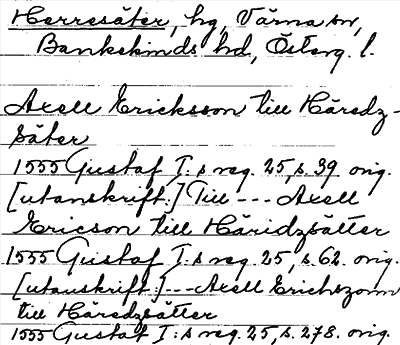 Herresäter, hg, Värna sn,
Bankekinds hd, Österg. l.
Axell Ericksson till Häredz-
säter
1555 Gustaf I:s reg. 25, s. 39 orig.
[utanskrift:] Till --- Axell
Ericson till Häridzsätter
1555 Gustaf I:s reg. 25, s. 62. orig.
[utanskrift:] --- Axell Erichszonn
till Häredzsätter
1555 Gustaf I:s reg. 25, s. 278. orig.